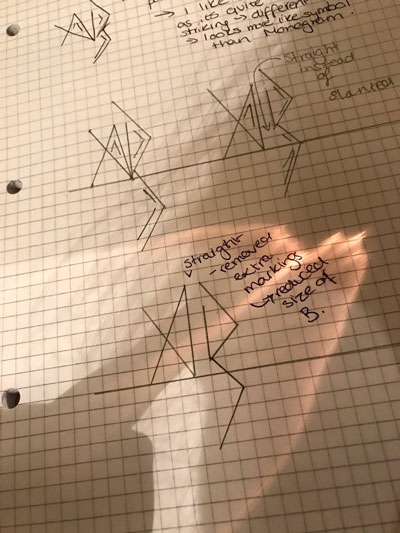 → I like
as its quite
striking → different
→ looks more like symbol
than Monogram.
straight
instead
of
slanted
straight
- removed
extra
markings
→ reduced
size of
B.